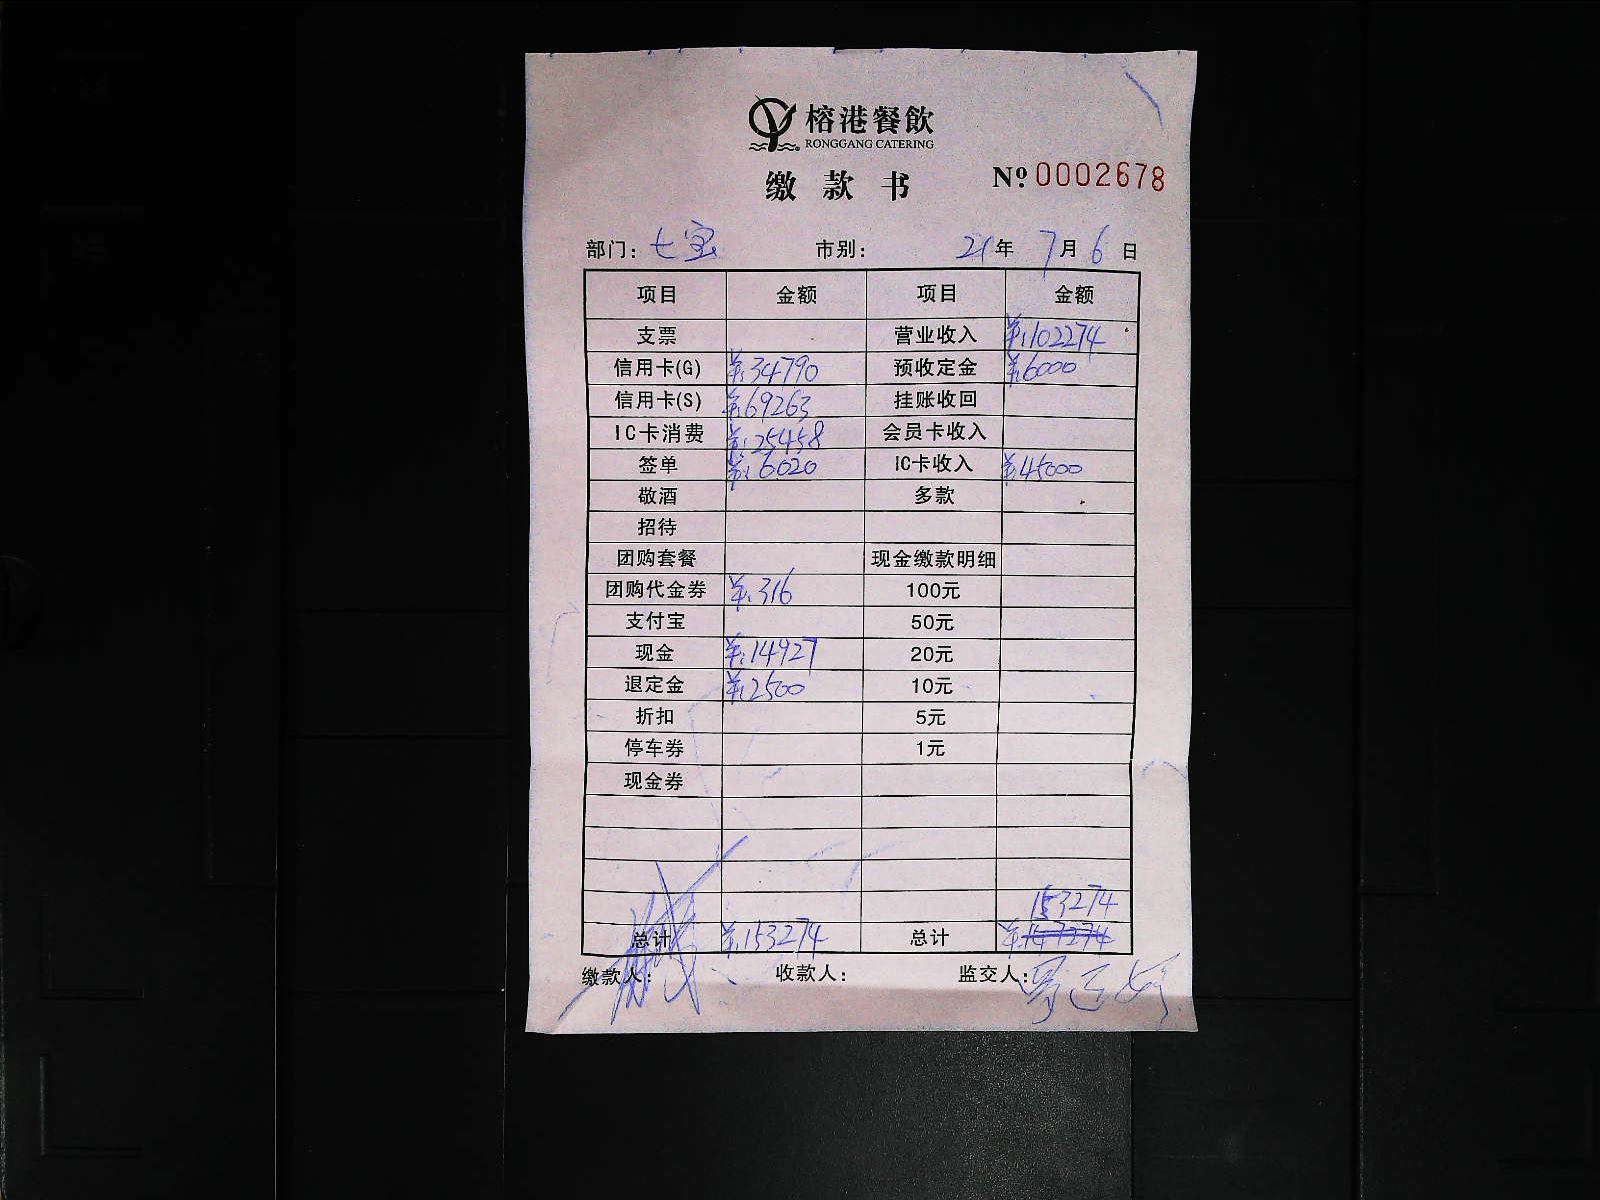 榕港餐飲
RONGGANG CATERING
缴款书 Nº 0002678
部门：七宝 市别： 21年 7月 6日
项目 金额 项目 金额
支票 营业收入 ¥:102274
信用卡(G) ¥:34790 预收定金 ¥:6000
信用卡(S) ¥:69263 挂账收回
IC卡消费 ¥:25458 会员卡收入
签单 ¥:6020 IC卡收入 ¥:45000
敬酒 多款
招待
团购套餐 现金缴款明细
团购代金券 ¥:316 100元
支付宝 50元
现金 ¥:14927 20元
退定金 ¥:2500 10元
折扣 5元
停车券 1元
现金券
153274
总计 ¥:153274 总计 ¥:147274
缴款人： 收款人： 监交人：